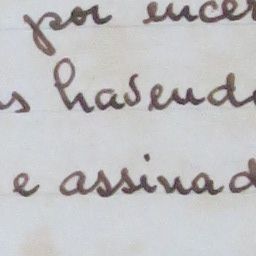 por encer
s havend
e assinad